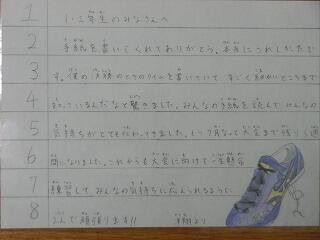 1 1・2年生のみなさんへ
2 手紙を書いてくれてありがとう。本当にうれしかったで
3 す。僕の決勝のときのタイムを書いていて、すごく細かいところまで
4 知っているんだなと驚きました。みんなの手紙を読んで、みんなの
5 気持ちがとても伝わってきました。もう7月なって大会まで残り3週
6 間になりました。これからも大会に向けて一生懸命
7 練習して、みんなの気持ちに応えられるように
8 で頑張ります!!
翔より